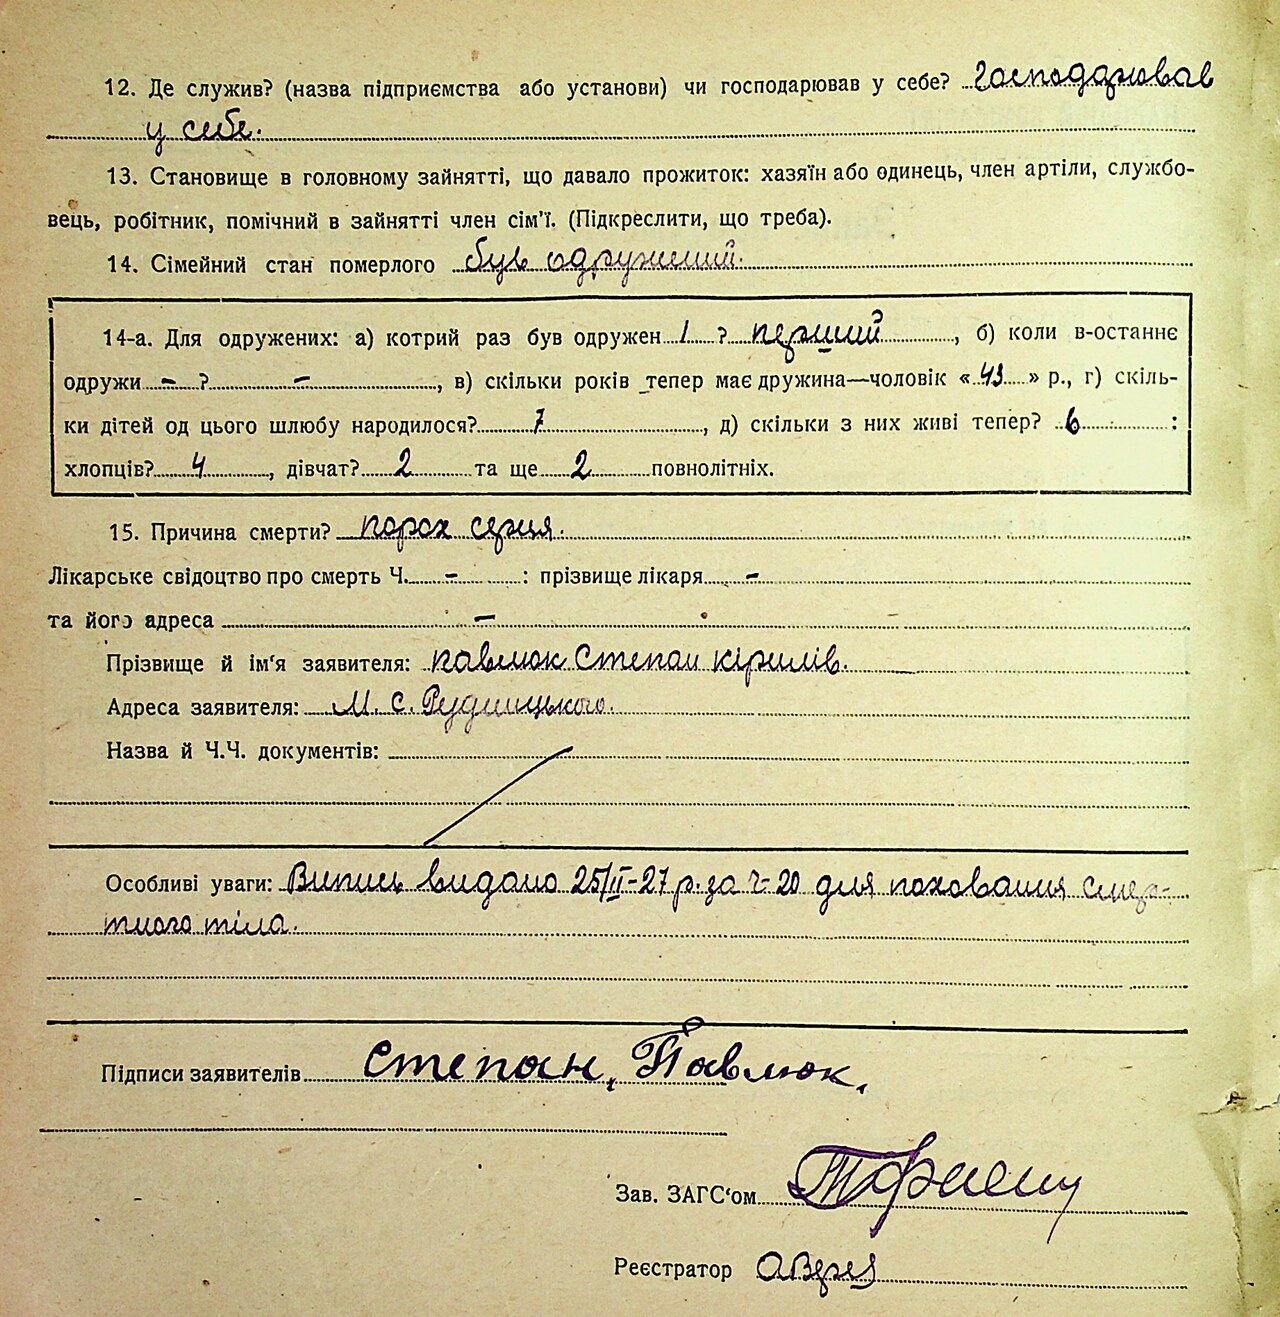 12. Де служив? (назва підприємства або установи) чи господарював у себе? господарював
у себе.
13. Становище в головному зайнятті, що давало прожиток: хазяїн або одинець, член артіли, службо-
вець, робітник, помічний в зайнятті член сім'ї. (Підкреслити, що треба).
14. Сімейний стан померлого був одружений.
14-а. Для одружених: а) котрий раз був одружен 1 ? перший, б) коли в-останнє
одружи - ? -, в) скільки років тепер має дружина—чоловік « 43 » р., г) скіль-
ки дітей од цього шлюбу народилося? 7, д) скільки з них живі тепер? 6 :
хлопців? 4, дівчат? 2 та ще 2 повнолітніх.
15. Причина смерти? порох серця.
Лікарське свідоцтво про смерть Ч. - : прізвище лікаря -
та його адреса -
Прізвище й ім'я заявителя: павлюк Степан кірилів.
Адреса заявителя: М. с. Рудницького.
Назва й Ч.Ч. документів:
Особливі уваги: Випись видано 25/II-27 р. за ч-20 для поховання смер-
тного тіла.
Підписи заявителів Степан, Павлюк,
Зав. ЗАГС'ом
Реєстратор